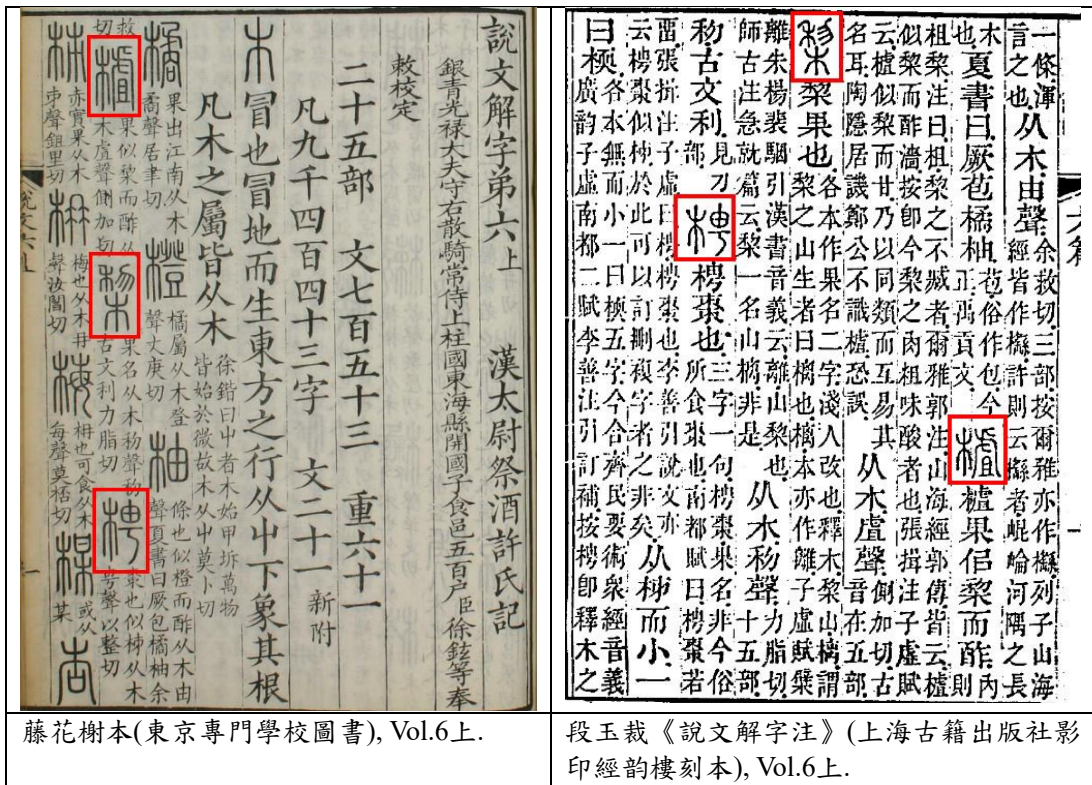 說文解字弟六上　漢太尉祭酒許氏記
銀青光禄大夫守右散騎常侍上柱國東海縣開國子食邑五百户臣徐鉉等奉
敕校定
二十五部　文七百五十三　重六十一
凡九千四百四十三字　文二十一新附
木冒也冒地而生東方之行从屮下象其根
凡木之屬皆从木徐鍇曰屮者木始甲拆萬物皆始於微故木从屮莫卜切
橘果出江南从木矞聲居聿切橙橘屬从木登聲丈庚切柚條也似橙而酢从木由聲夏書曰厥包橘柚余
救切樝果似棃而酢从木虘聲側加切棃果名从木𥝢聲𥝢古文利力脂切梬棗也似柹从木甹聲以整切
柹赤實果从木𠂔聲鉏里切枏梅也从木冄聲汝閻切梅枏也可食从木每聲莫桮切楳或从某杏
說文六上
一條渾言之也从木由聲余救切三部按爾雅亦作櫾列子山海經皆作櫾許則云櫾者崐崘河隅之長
木也夏書曰厥苞橘柚苞俗作包今正禹貢文樝樝果佀棃而酢內則
柤棃注曰柤棃之不臧者爾雅郭注山海經郭傳皆云樝似棃而酢濇按卽今棃之肉粗味酸者也張揖注子虛賦
云樝似棃而甘乃以同類而互易其名耳陶隱居譏鄭公不識樝恐誤从木虘聲側加切古音在五部
棃棃果也各本作果名二字淺人改也釋木棃山樆謂棃之山生者曰樆也樆本亦作離子虛賦檗
離朱楊裴駰引漢書音義云離山棃也師古注急就篇云棃一名山樆非是从木𥝢聲力脂切十五部
𥝢古文利見刀部梬梬棗也三字一句梬棗果名非今俗所食棗也南都賦曰梬棗若
畱張揖注子虛曰梬梬棗也李善引說文亦云梬棗似柹於此可以訂刪複字者之非矣从柹而小一
曰㮕各本無而小一曰㮕五字今合齊民要術衆經音義廣韵子虛南都二賦李善注引訂補按梬卽釋木之
六篇
藤花榭本(東京專門學校圖書), Vol.6上.
段玉裁《說文解字注》(上海古籍出版社影
印經韵樓刻本), Vol.6上.